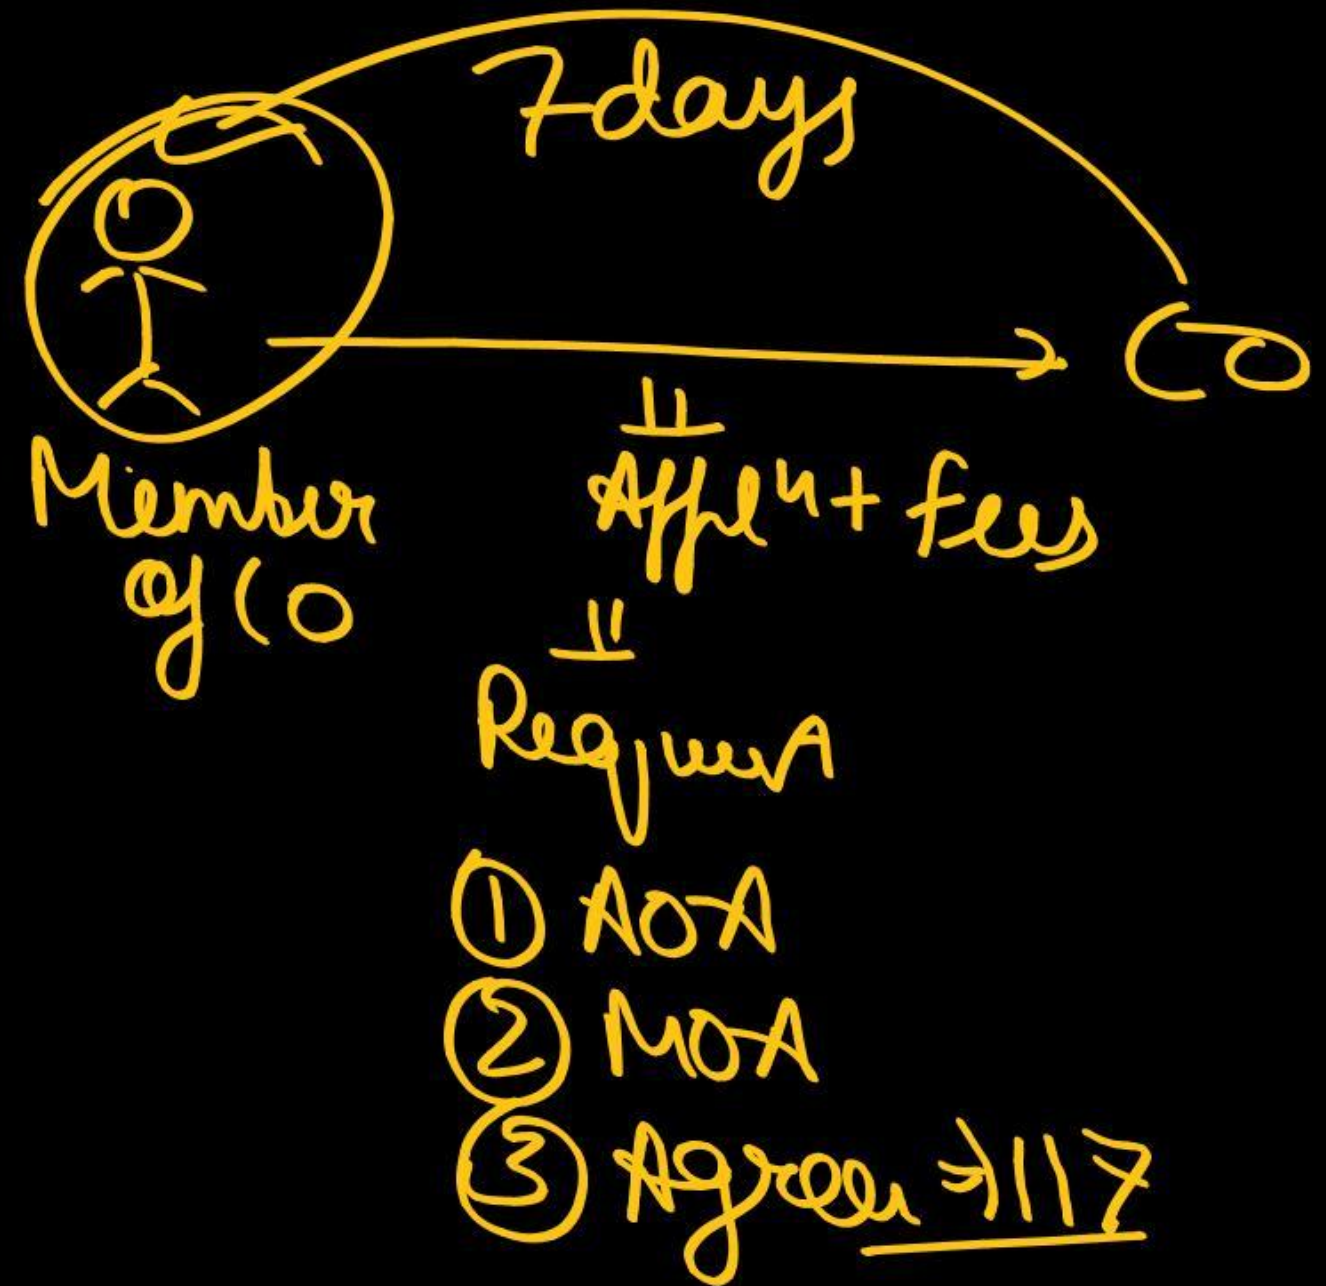 7days
CO
Member
of CO
Appl^n + fees
Request
① AOA
② MOA
③ Agree → 117